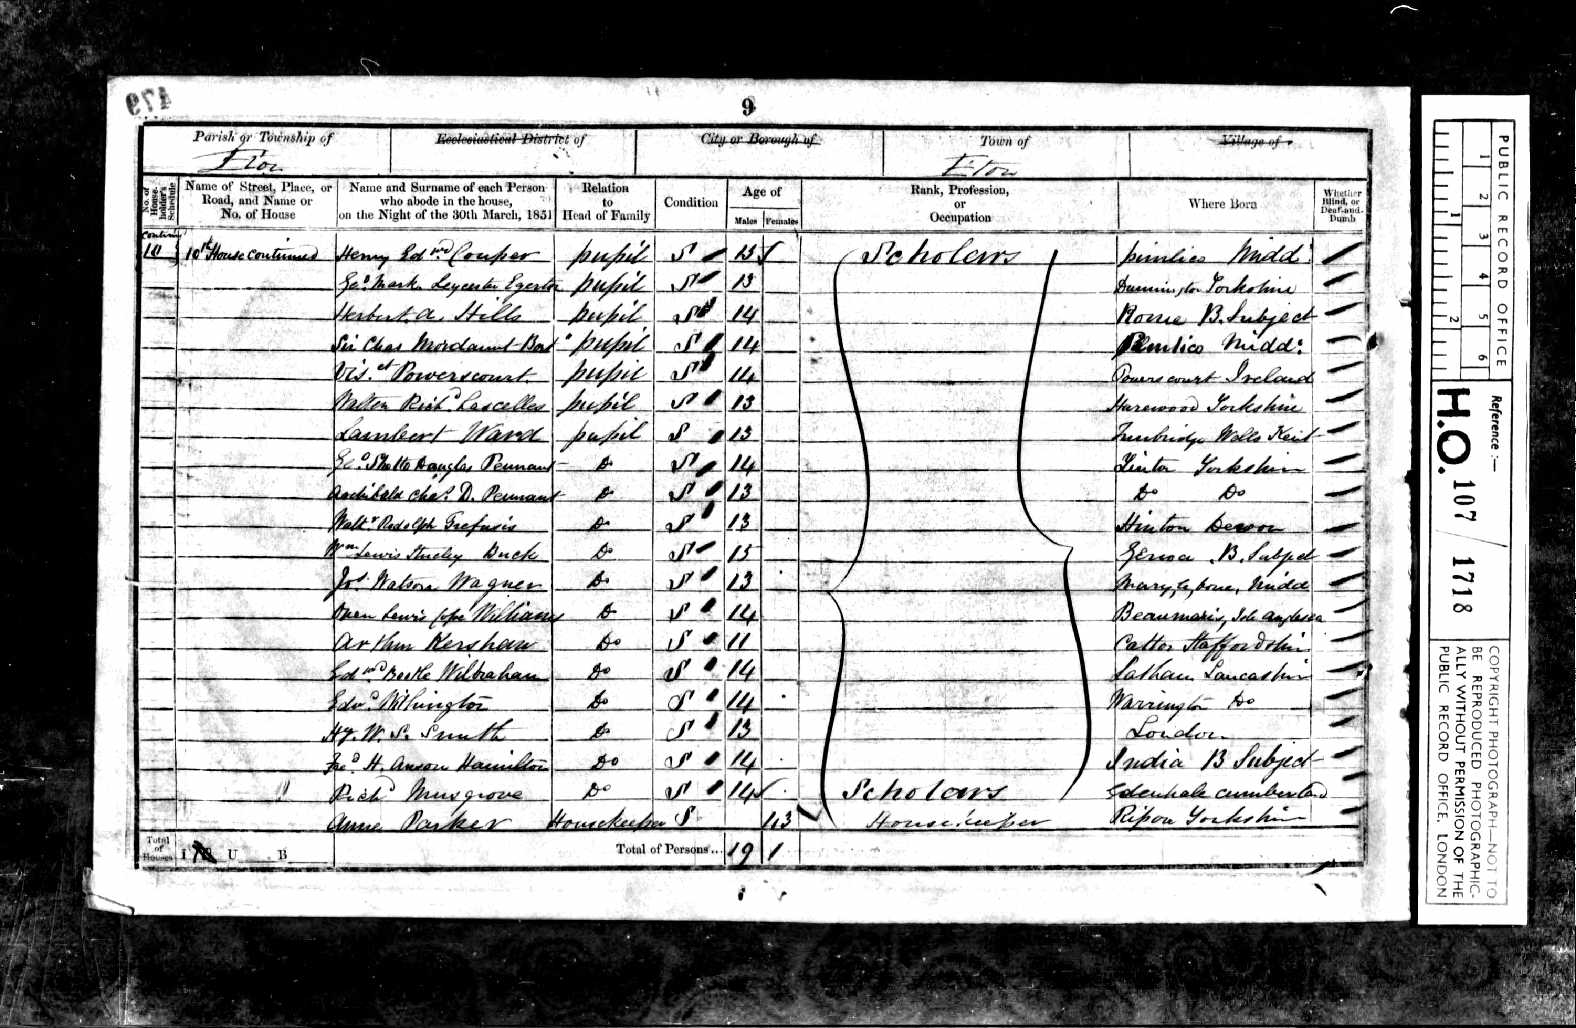 479
9
Parish or Township of
Ecclesiastical District of
City or Borough of
Town of
Village of
Eton
Eton
No. of House-holder's Schedule
Name of Street, Place, or Road, and Name or No. of House
Name and Surname of each Person who abode in the house, on the Night of the 30th March, 1851
Relation to Head of Family
Condition
Age of
Males
Females
Rank, Profession, or Occupation
Where Born
Whether Blind, or Deaf-and-Dumb
10 10th House continued Henry Edwd. Couper pupil S 13 Scholars pimlico Midd:
Geo. Mark Leycester Egerton pupil S 13 Dunnington Yorkshire
Herbert. A. Hills pupil S 14 Rome B. Subject
Sir Chas Mordaunt Bart pupil S 14 Pimlico Midd:
Vis.ct Powerscourt. pupil S 14 Powerscourt Ireland
Richd Lascelles pupil S 13 Harewood Yorkshire
Lambert Ward pupil S 13 Tunbridge Wells Kent
Geo. Sholto Douglas Pennant Do S 14 Linton Yorkshire
Archibald Chas. D. Pennant Do S 13 Do Do
Waltr Rodolph Trefusis Do S 13 Hinton Devon
Wm Lewis Stucley Buck Do S 15 Genoa B. Subject
Jos. Watson Wagner Do S 13 Marylebone, Midd
Owen Lewis Cope Williams Do S 14 Beaumaris, Isle Anglesea
Arthur Kershaw Do S 11 Catton Staffordshire
Edwd Bootle Wilbraham Do S 14 Latham Lancashire
Edwd. Withington Do S 14 Warrington Do
Hy. W. S. Smith Do S 13 London
H. Anson Hamilton Do S 14 India B Subject
" Richd Musgrove Do S 14 Scholars Edenhale Cumberland
Anne Parker Housekeeper S 43 Housekeeper Ripon Yorkshire
Total of Houses
I
U
B
Total of Persons... 19 1
PUBLIC RECORD OFFICE
1 2 3 4 5 6
1 2
Reference :—
H.O. 107 / 1718
COPYRIGHT PHOTOGRAPH—NOT TO
BE REPRODUCED PHOTOGRAPHIC-
ALLY WITHOUT PERMISSION OF THE
PUBLIC RECORD OFFICE, LONDON